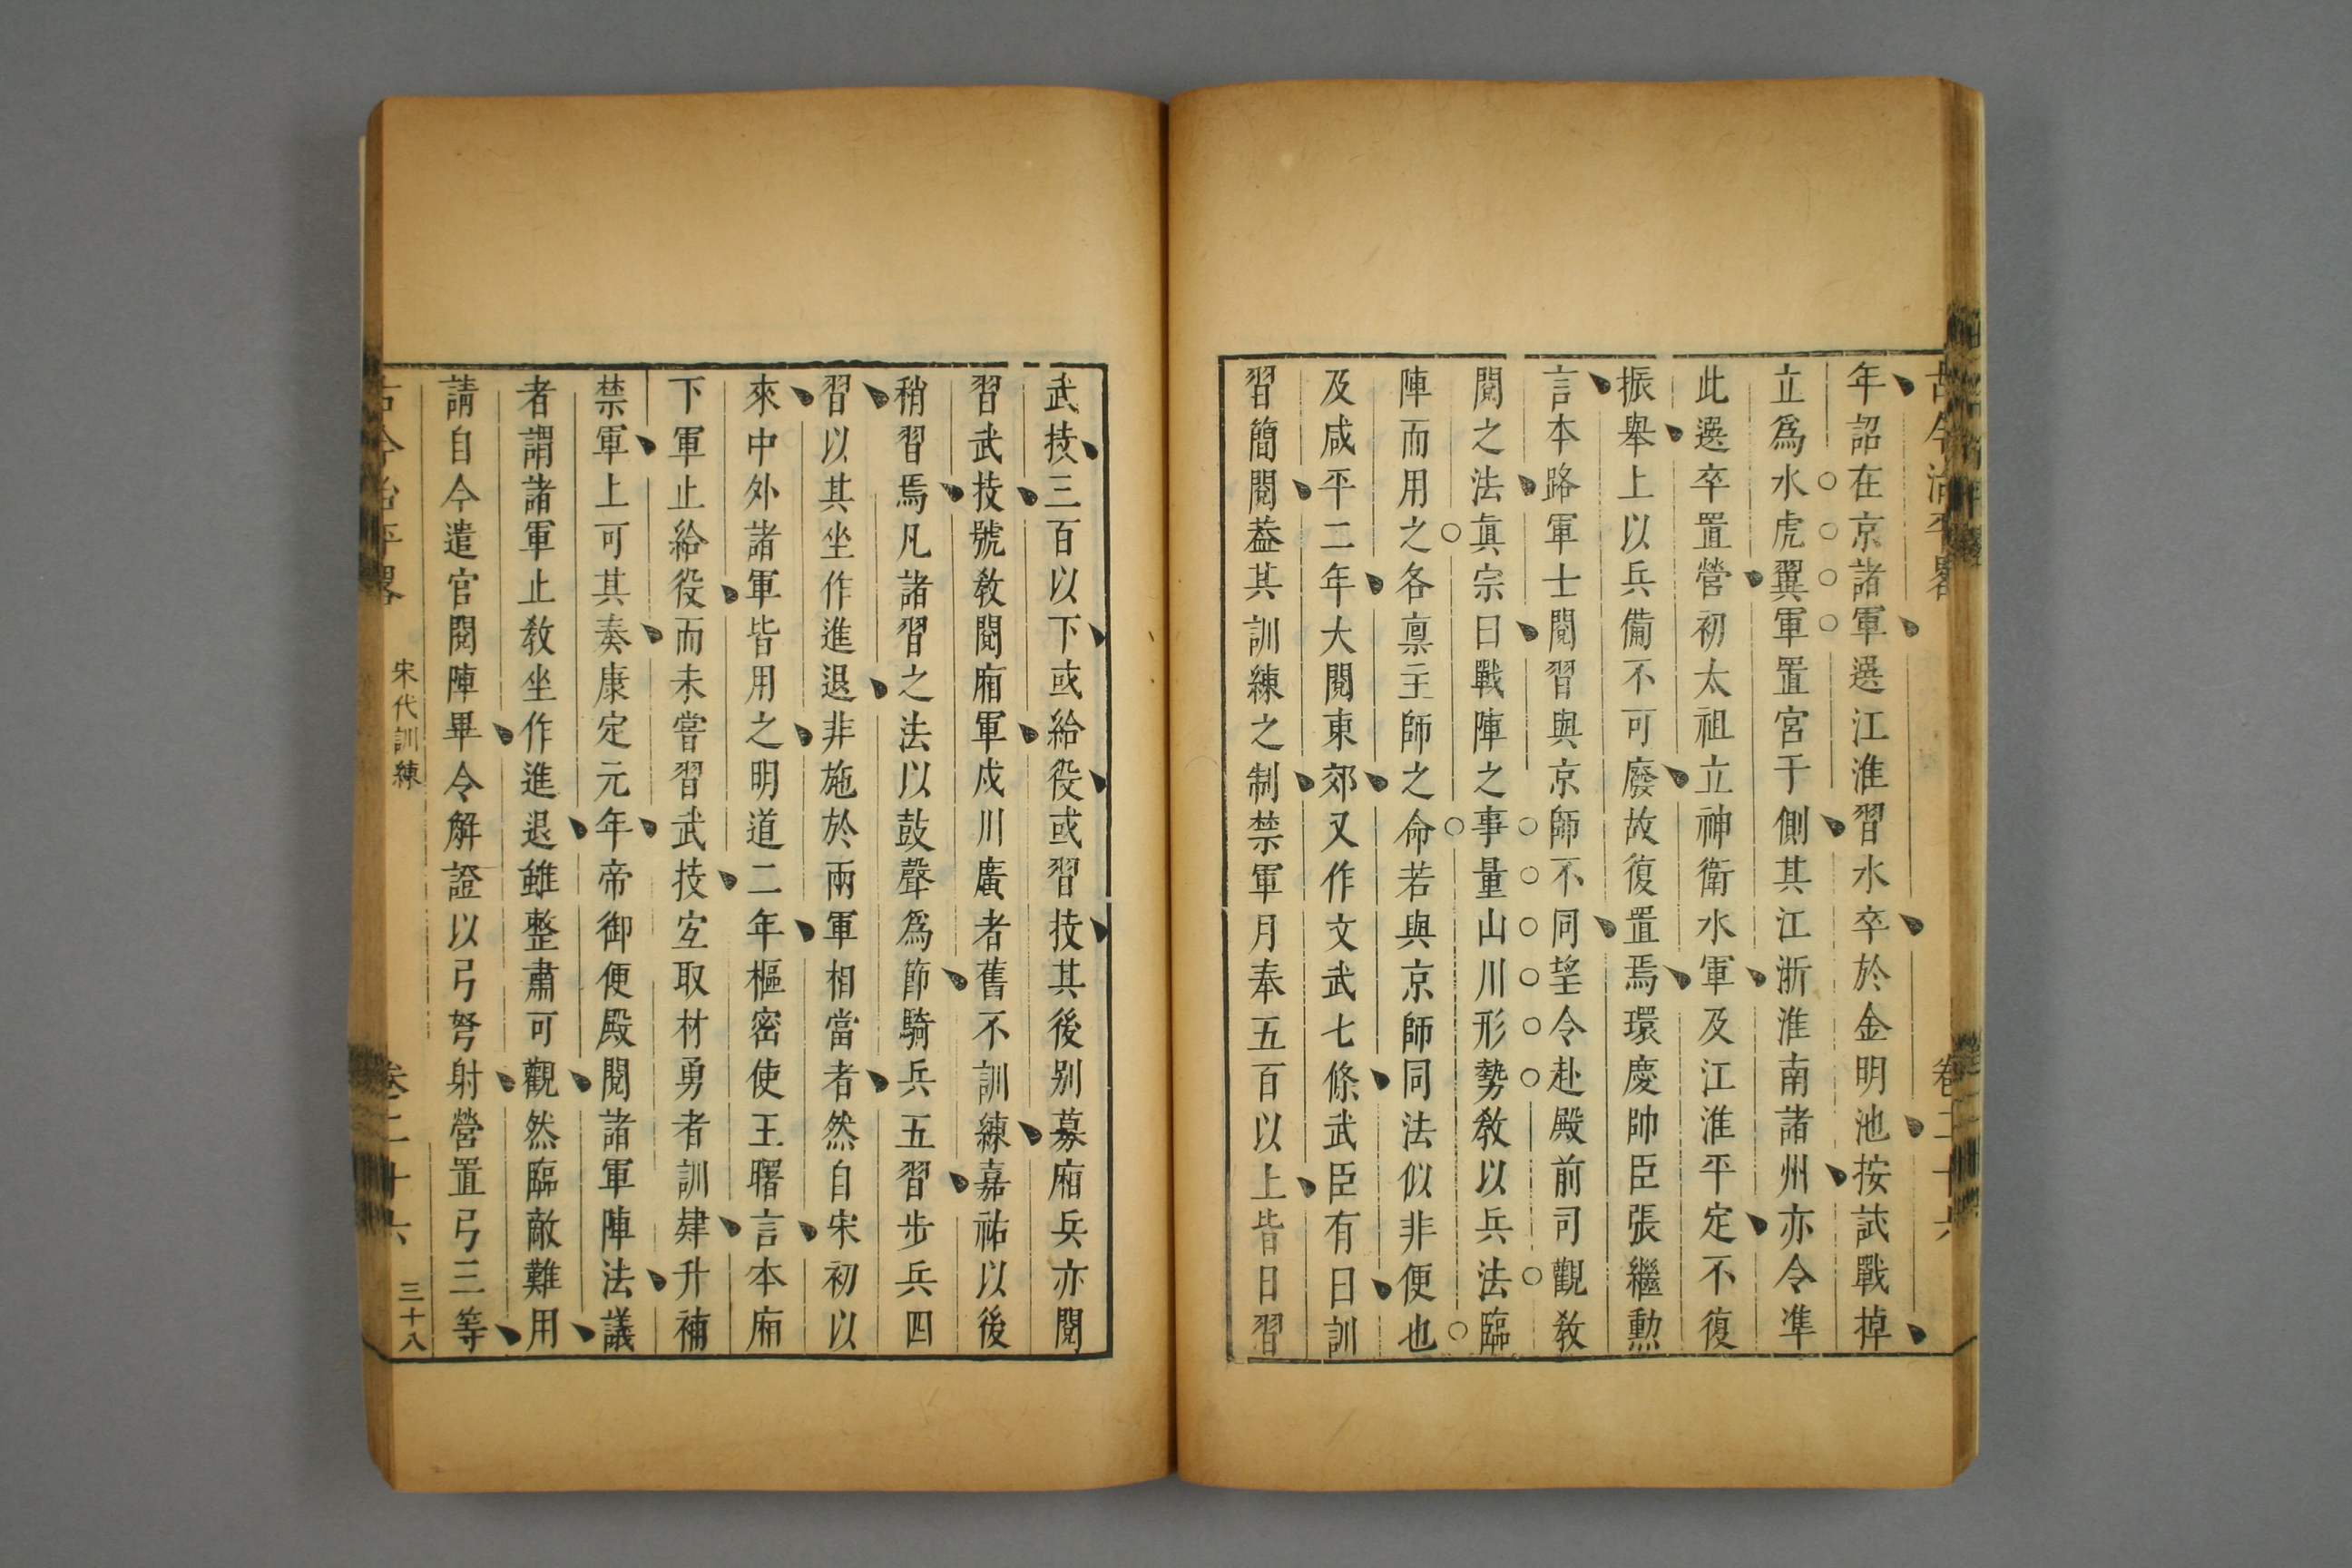 古今治平畧 卷二十六
年詔在京諸軍選江淮習水卒於金明池按試戰掉
立爲水虎翼軍置宮于側其江浙淮南諸州亦令凖
此選卒置營初太祖立神衛水軍及江淮平定不復
振舉上以兵備不可廢故復置焉環慶帥臣張繼勲
言本路軍士閱習與京師不同望令赴殿前司觀敎
閱之法眞宗曰戰陣之事量山川形勢敎以兵法臨
陣而用之各禀主師之命若與京師同法似非便也
及咸平二年大閱東郊又作文武七條武臣有曰訓
習簡閱葢其訓練之制禁軍月奉五百以上皆日習
武技三百以下或給役或習技其後别募廂兵亦閱
習武技號敎閱廂軍戍川廣者舊不訓練嘉祐以後
稍習焉凡諸習之法以鼓聲爲節騎兵五習步兵四
習以其坐作進退非施於兩軍相當者然自宋初以
來中外諸軍皆用之明道二年樞密使王曙言本廂
下軍止給役而未嘗習武技宐取材勇者訓肄升補
禁軍上可其奏康定元年帝御便殿閱諸軍陣法議
者謂諸軍止敎坐作進退雖整肅可觀然臨敵難用
請自今遣官閱陣畢令解證以弓弩射營置弓三等
古今治平畧 宋代訓練 卷二十六 三十八